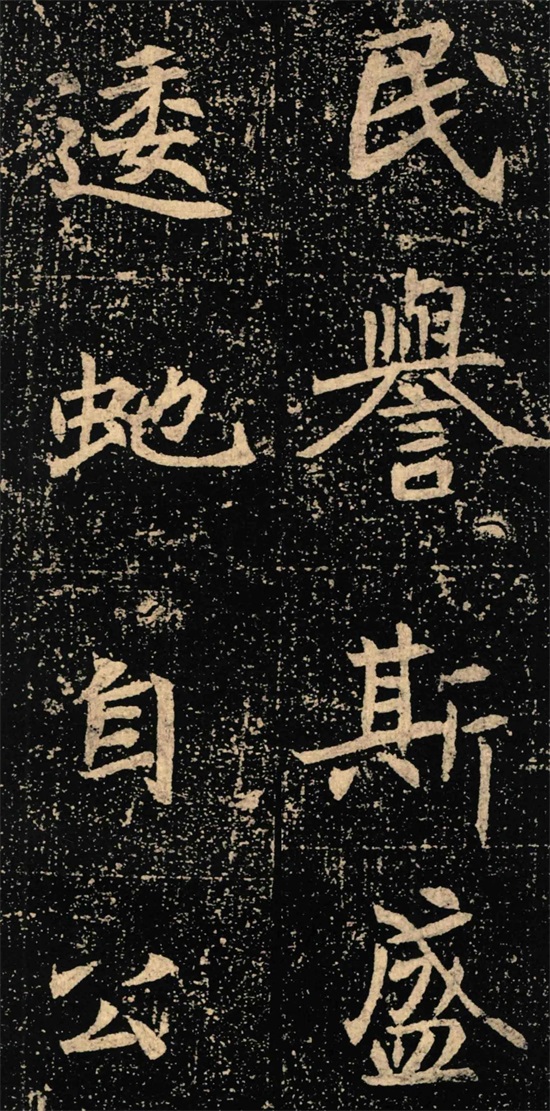 民譽斯盛
逶虵自公